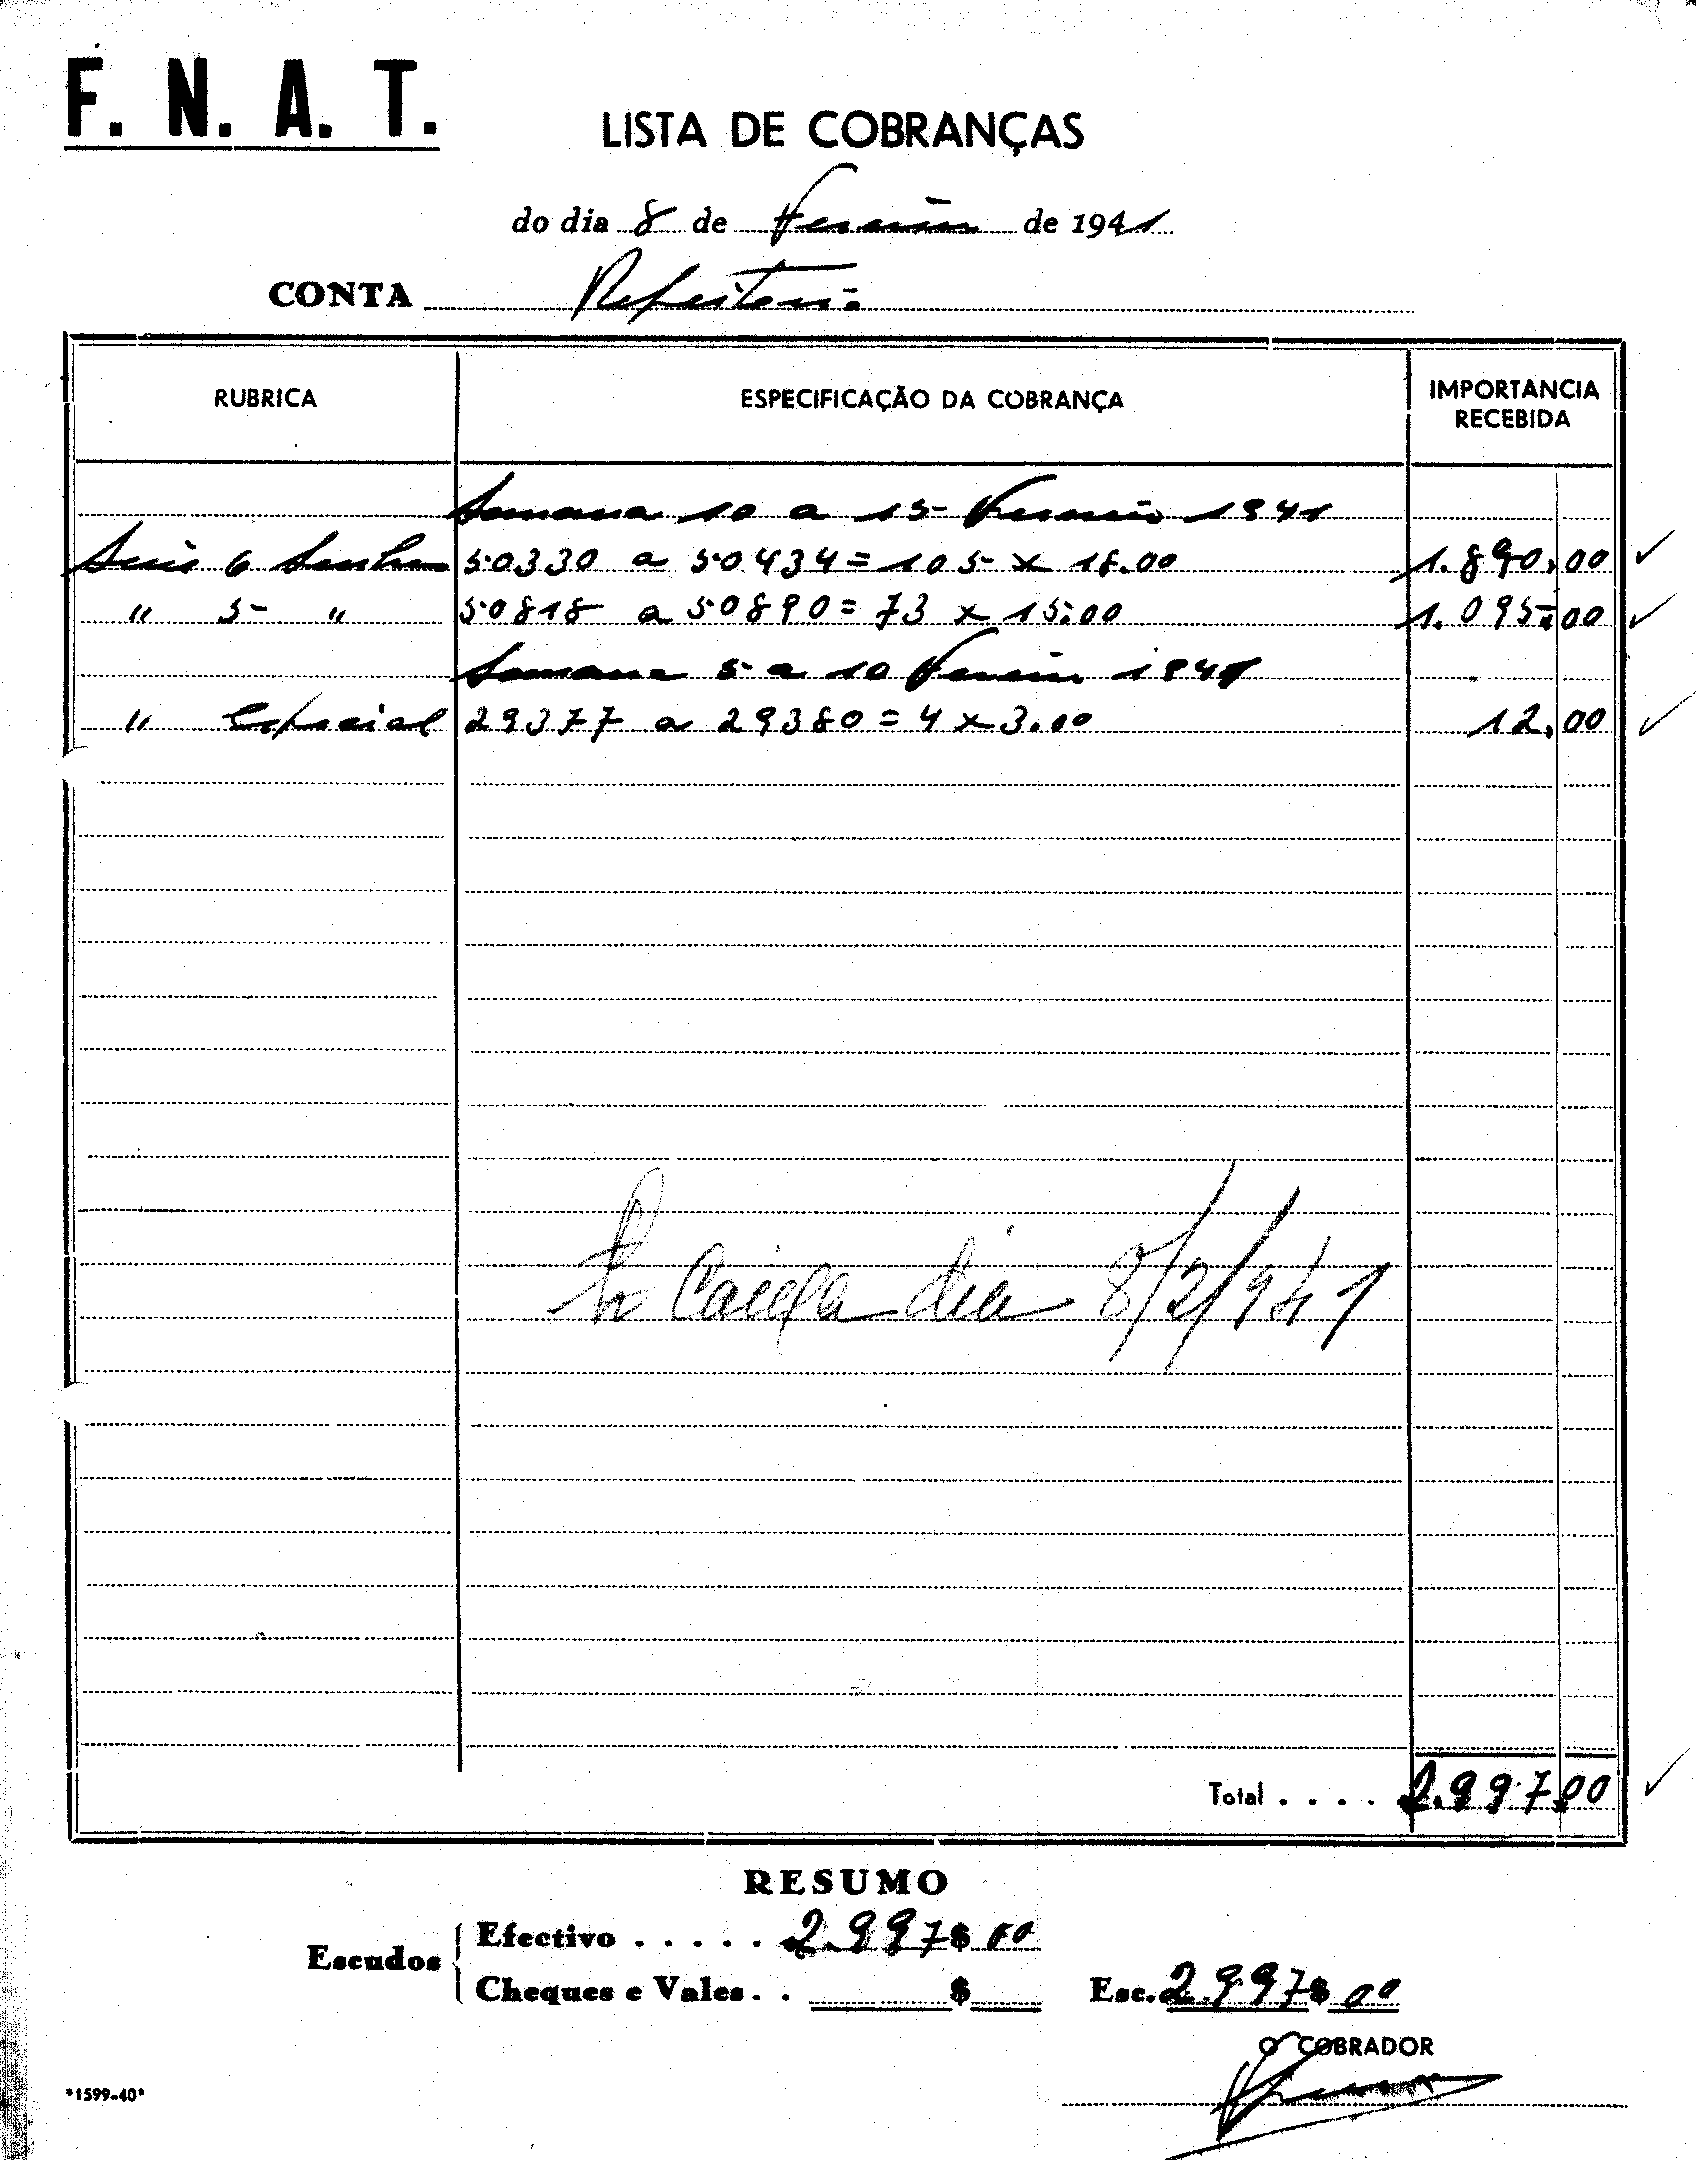 F. N. A. T.
LISTA DE COBRANÇAS
do dia 8 de Fevereiro de 1941
CONTA Refeitorio
RUBRICA ESPECIFICAÇÃO DA COBRANÇA IMPORTANCIA RECEBIDA
Semana 10 a 15 Fevereiro 1941
Serie 6 Senhas 50330 a 50434 = 105 x 18.00 1.890,00
" 5 " 50818 a 50890 = 73 x 15.00 1.095,00
Semana 5 a 10 Fevereiro 1941
" Especial 29377 a 29380 = 4 x 3.00 12,00
Caixa dia 8/2/941
Total . . . . 2.997,00
RESUMO
Escudos
Efectivo . . . . . 2.997$00
Cheques e Vales. . $ Esc. 2.997$00
O COBRADOR
*1599-40*